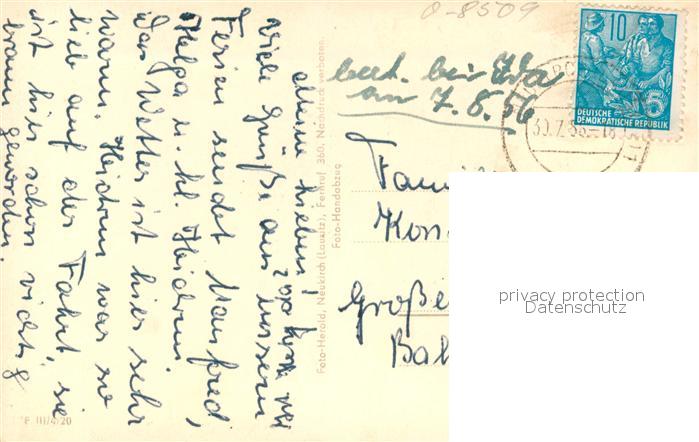 o-8509
beck. bei Ida
am 7.8.56
10
DEUTSCHE
DEMOKRATISCHE REPUBLIK
30.7.56.-18
Fami
Kon
Große
Bah
privacy protection
Datenschutz
Meine Lieben!
Viele Grüße aus unseren
Ferien sendet Manfred,
Helga u. kl. Heidrun.
Das Wetter ist hier sehr
warm. Heidrun war so
lieb auf der Fahrt, sie
ist hier schon richtig
braun geworden.
Foto-Herold, Neukirch (Lausitz), Fernruf 360, Nachdruck verboten.
Foto-Handabzug
III/4/20